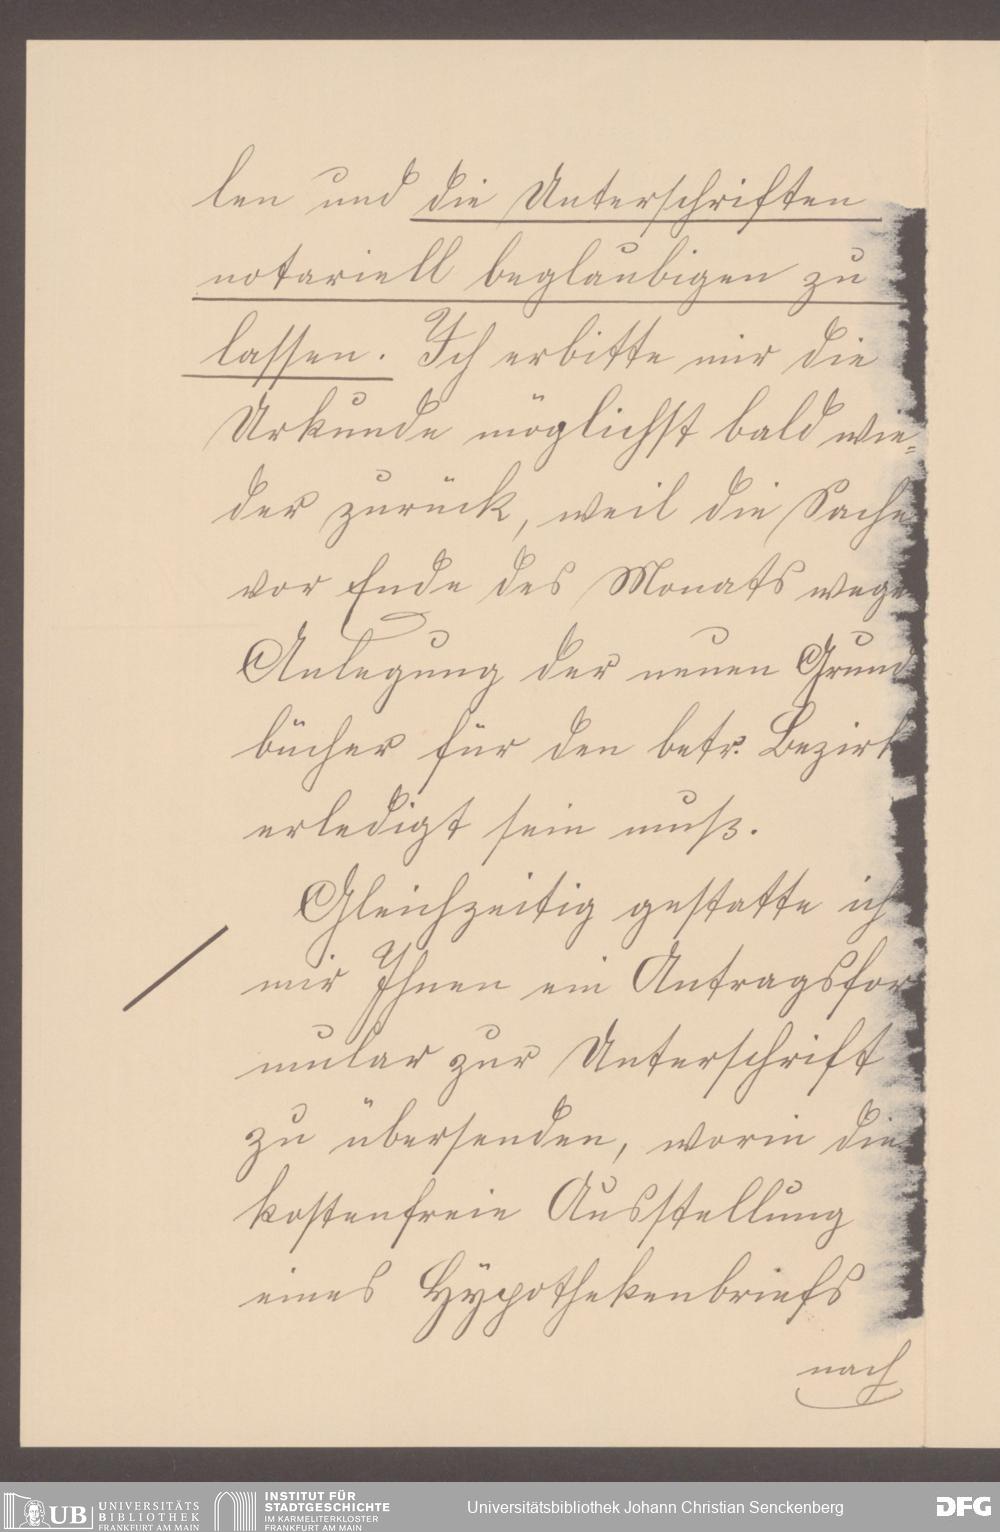 len und die Unterschriften
notariell beglaubigen zu
lassen. Ich erbitte mir die
Urkunde möglichst bald wie=
der zurück, weil die Sache
vor Ende des Monats wege
Anlegung der neuen Grund
bücher für den betr. Bezirk
erledigt sein muß.
Gleichzeitig gestatte ich
mir Ihnen ein Antragsfor
mular zur Unterschrift
zu übersenden, worin die
kostenfreie Ausstellung
eines Hÿpothekenbriefs
nach
UB UNIVERSITÄTS
BIBLIOTHEK
FRANKFURT AM MAIN
INSTITUT FÜR
STADTGESCHICHTE
IM KARMELITERKLOSTER
FRANKFURT AM MAIN
Universitätsbibliothek Johann Christian Senckenberg
DFG